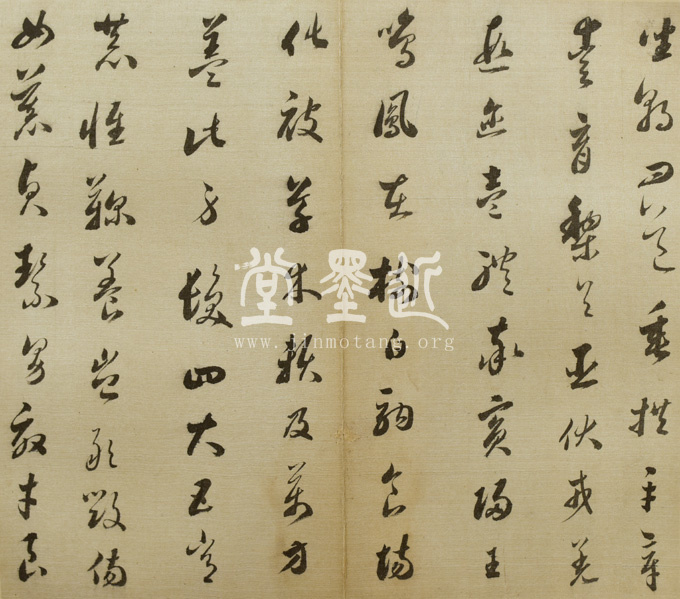 坐朝問道垂拱平章
愛育黎首臣伏戎羌
遐邇壹體率賓歸王
鳴鳳在樹白駒食場
化被草木賴及萬方
蓋此身髮四大五常
恭惟鞠養豈敢毀傷
女慕貞絜男效才良
近墨堂
www.jinmotang.org